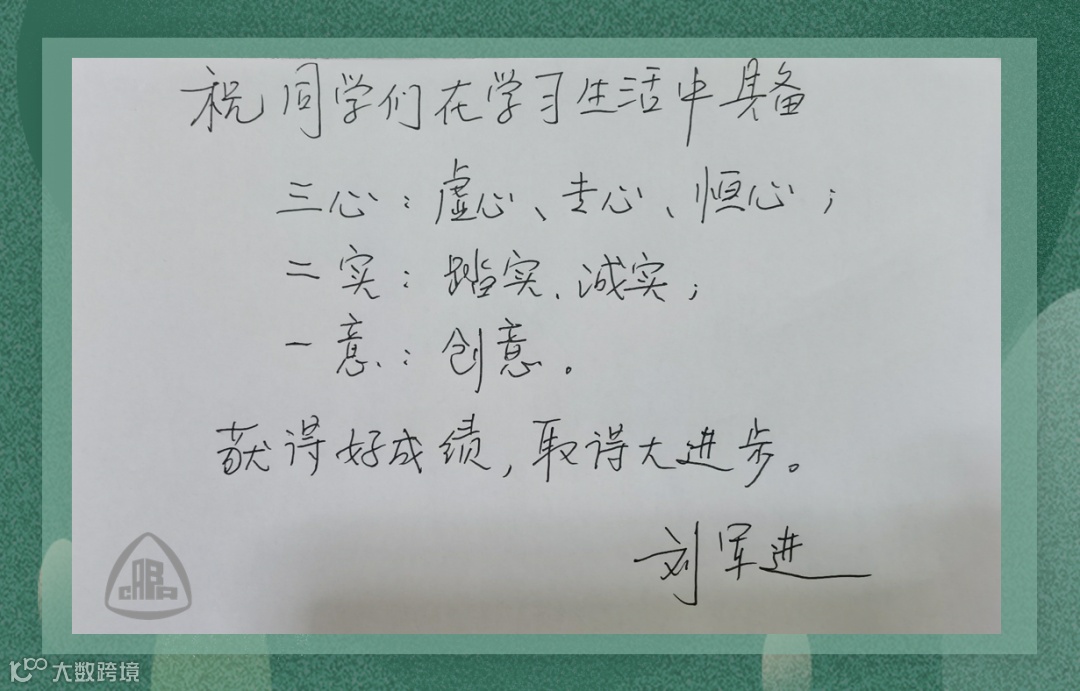 祝同学们在学习生活中具备
三心：虚心、专心、恒心；
二实：踏实、诚实；
一意：创意。
获得好成绩，取得大进步。
刘军进
CABRA
大数跨境